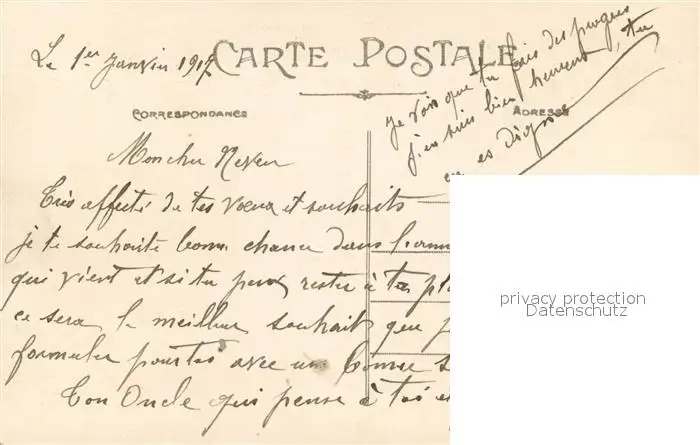 Le 1er Janvier 1917
CARTE POSTALE
CORRESPONDANCE
ADRESSE
Je vois que tu fais des progrès
j'en suis bien heureux, tu
en es digne
Mon cher Neveu
Très affecté de tes vœux et souhaits
je te souhaite bonne chance dans l'ann
qui vient et si tu peux rester à ta pl
ce sera le meilleur souhait que
formuler pour toi avec une bonne s
Ton Oncle qui pense à toi
privacy protection
Datenschutz